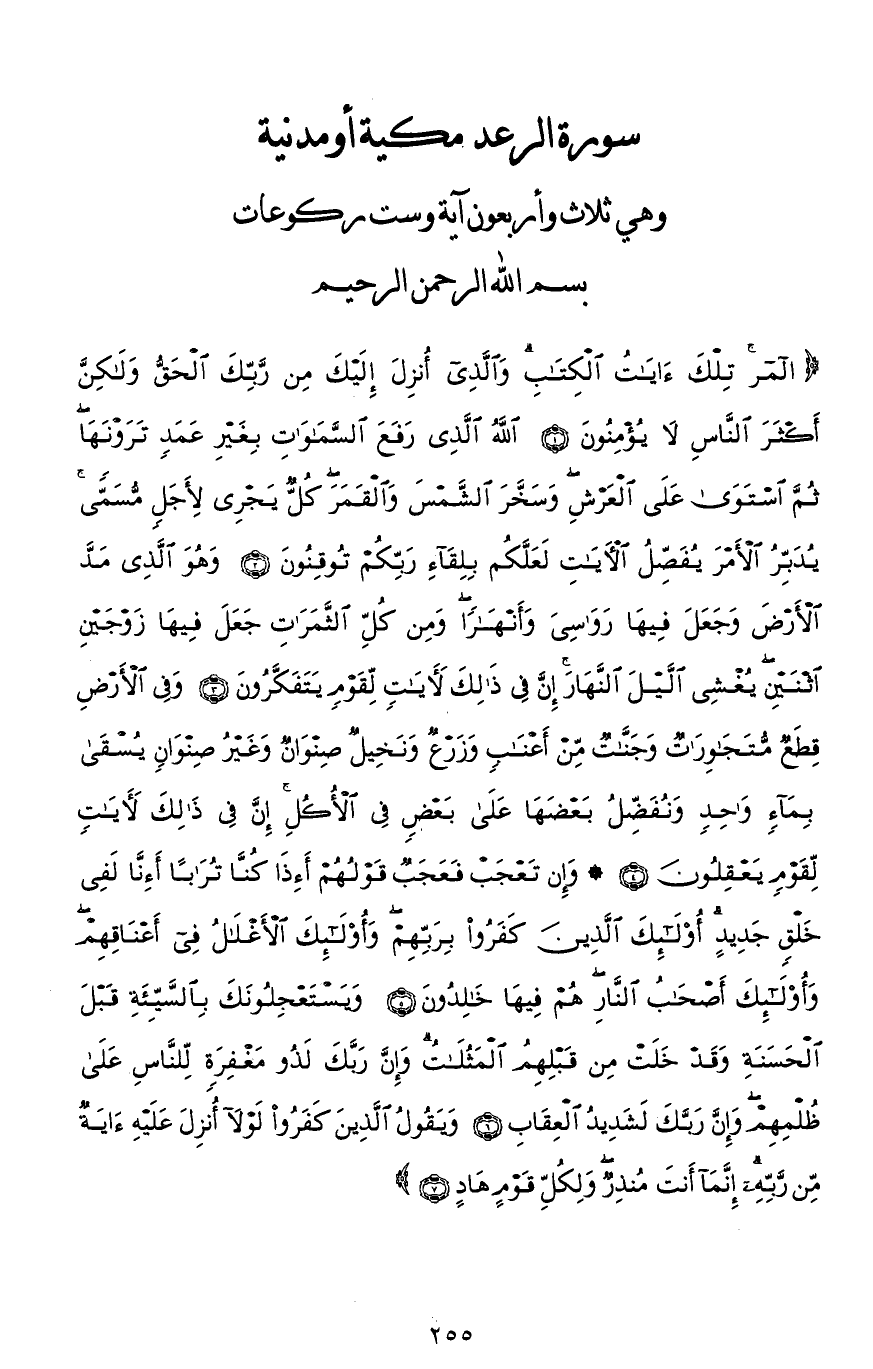 سورة الرعد مكية أو مدنية
وهي ثلاث وأربعون آية وست ركوعات
بسم الله الرحمن الرحيم
﴿ الٓمٓرۚ تِلْكَ ءَايَـٰتُ ٱلْكِتَـٰبِۗ وَٱلَّذِىٓ أُنزِلَ إِلَيْكَ مِن رَّبِّكَ ٱلْحَقُّ وَلَـٰكِنَّ
أَكْثَرَ ٱلنَّاسِ لَا يُؤْمِنُونَ ۝١ ٱللَّهُ ٱلَّذِى رَفَعَ ٱلسَّمَـٰوَٰتِ بِغَيْرِ عَمَدٍ تَرَوْنَهَاۖ
ثُمَّ ٱسْتَوَىٰ عَلَى ٱلْعَرْشِۖ وَسَخَّرَ ٱلشَّمْسَ وَٱلْقَمَرَۖ كُلٌّ يَجْرِى لِأَجَلٍ مُّسَمًّىۚ
يُدَبِّرُ ٱلْأَمْرَ يُفَصِّلُ ٱلْـَٔايَـٰتِ لَعَلَّكُم بِلِقَآءِ رَبِّكُمْ تُوقِنُونَ ۝٢ وَهُوَ ٱلَّذِى مَدَّ
ٱلْأَرْضَ وَجَعَلَ فِيهَا رَوَٰسِىَ وَأَنْهَـٰرًاۖ وَمِن كُلِّ ٱلثَّمَرَٰتِ جَعَلَ فِيهَا زَوْجَيْنِ
ٱثْنَيْنِۖ يُغْشِى ٱلَّيْلَ ٱلنَّهَارَۚ إِنَّ فِى ذَٰلِكَ لَـَٔايَـٰتٍ لِّقَوْمٍ يَتَفَكَّرُونَ ۝٣ وَفِى ٱلْأَرْضِ
قِطَعٌ مُّتَجَـٰوِرَٰتٌ وَجَنَّـٰتٌ مِّنْ أَعْنَـٰبٍ وَزَرْعٌ وَنَخِيلٌ صِنْوَانٌ وَغَيْرُ صِنْوَانٍ يُسْقَىٰ
بِمَآءٍ وَٰحِدٍ وَنُفَضِّلُ بَعْضَهَا عَلَىٰ بَعْضٍ فِى ٱلْأُكُلِۚ إِنَّ فِى ذَٰلِكَ لَـَٔايَـٰتٍ
لِّقَوْمٍ يَعْقِلُونَ ۝٤ * وَإِن تَعْجَبْ فَعَجَبٌ قَوْلُهُمْ أَءِذَا كُنَّا تُرَٰبًا أَءِنَّا لَفِى
خَلْقٍ جَدِيدٍۗ أُو۟لَـٰٓئِكَ ٱلَّذِينَ كَفَرُوا۟ بِرَبِّهِمْۖ وَأُو۟لَـٰٓئِكَ ٱلْأَغْلَـٰلُ فِىٓ أَعْنَاقِهِمْۖ
وَأُو۟لَـٰٓئِكَ أَصْحَـٰبُ ٱلنَّارِۖ هُمْ فِيهَا خَـٰلِدُونَ ۝٥ وَيَسْتَعْجِلُونَكَ بِٱلسَّيِّئَةِ قَبْلَ
ٱلْحَسَنَةِ وَقَدْ خَلَتْ مِن قَبْلِهِمُ ٱلْمَثُلَـٰتُۗ وَإِنَّ رَبَّكَ لَذُو مَغْفِرَةٍ لِّلنَّاسِ عَلَىٰ
ظُلْمِهِمْۖ وَإِنَّ رَبَّكَ لَشَدِيدُ ٱلْعِقَابِ ۝٦ وَيَقُولُ ٱلَّذِينَ كَفَرُوا۟ لَوْلَآ أُنزِلَ عَلَيْهِ ءَايَةٌ
مِّن رَّبِّهِۦٓۗ إِنَّمَآ أَنتَ مُنذِرٌۖ وَلِكُلِّ قَوْمٍ هَادٍ ۝٧ ﴾
٢٥٥